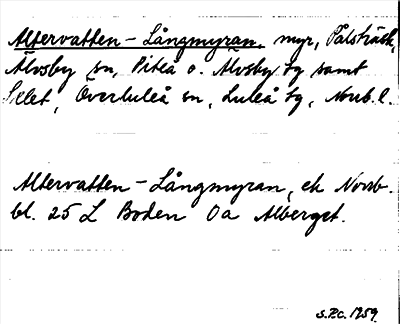 Altervatten - Långmyran, myr, Pålsträsk,
Älvsby sn, Piteå o. Älvsby tg samt
Selet, Överluleå sn, Luleå tg, Norrb.l.
Altervatten - Långmyran, ek Norrb.
bl. 25 L Boden 0a Alberget.
1959.